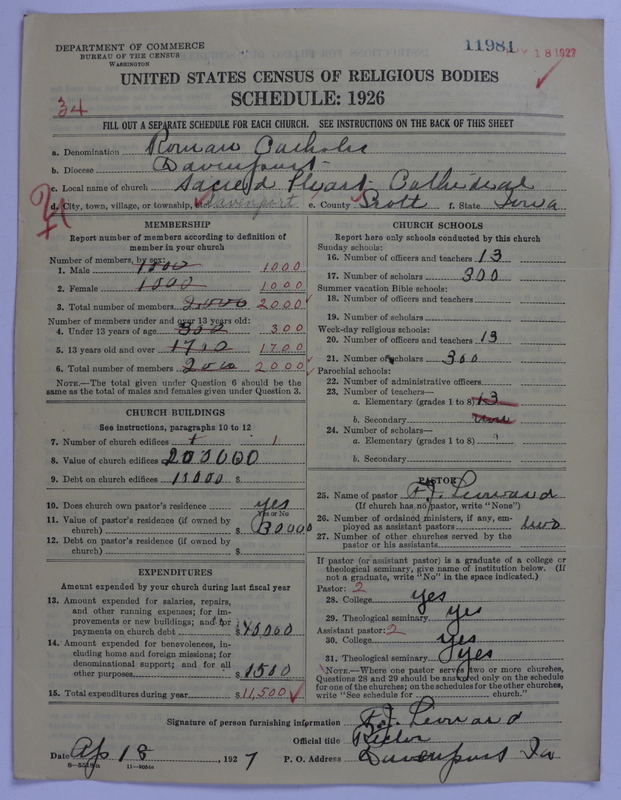 DEPARTMENT OF COMMERCE
BUREAU OF THE CENSUS
WASHINGTON
11981
18 1927
UNITED STATES CENSUS OF RELIGIOUS BODIES
SCHEDULE: 1926
34
FILL OUT A SEPARATE SCHEDULE FOR EACH CHURCH. SEE INSTRUCTIONS ON THE BACK OF THIS SHEET
a. Denomination Roman Catholic
b. Diocese Davenport
c. Local name of church Sacred Heart Cathedral
d. City, town, village, or township, etc. Davenport e. County Scott f. State Iowa
MEMBERSHIP
Report number of members according to definition of
member in your church
Number of members, by sex:
1. Male 1000 1000
2. Female 1000 1000
3. Total number of members 2000 2000
Number of members under and over 13 years old:
4. Under 13 years of age 300 300
5. 13 years old and over 1700 1700
6. Total number of members 2000 2000
NOTE.—The total given under Question 6 should be the
same as the total of males and females given under Question 3.
CHURCH BUILDINGS
See instructions, paragraphs 10 to 12
7. Number of church edifices 1 1
8. Value of church edifices 200000
9. Debt on church edifices $
10. Does church own pastor's residence yes
Yes or No
11. Value of pastor's residence (if owned by
church) $ 30000
12. Debt on pastor's residence (if owned by
church) $
EXPENDITURES
Amount expended by your church during last fiscal year
13. Amount expended for salaries, repairs,
and other running expenses; for im-
provements or new buildings; and for
payments on church debt $
14. Amount expended for benevolences, in-
cluding home and foreign missions; for
denominational support; and for all
other purposes 1500
15. Total expenditures during year $ 11,500
CHURCH SCHOOLS
Report here only schools conducted by this church
Sunday schools:
16. Number of officers and teachers 13
17. Number of scholars 300
Summer vacation Bible schools:
18. Number of officers and teachers
19. Number of scholars
Week-day religious schools:
20. Number of officers and teachers 13
21. Number of scholars 300
Parochial schools:
22. Number of administrative officers
23. Number of teachers—
a. Elementary (grades 1 to 8) 13
b. Secondary
24. Number of scholars—
a. Elementary (grades 1 to 8)
b. Secondary
PASTOR
25. Name of pastor Leonard
(If church has no pastor, write "None")
26. Number of ordained ministers, if any, em-
ployed as assistant pastors two
27. Number of other churches served by the
pastor or his assistants
If pastor (or assistant pastor) is a graduate of a college or
theological seminary, give name of institution below. (If
not a graduate, write "No" in the space indicated.)
Pastor: 2
28. College yes
29. Theological seminary yes
Assistant pastor: 2
30. College yes
31. Theological seminary yes
NOTE.—Where one pastor served two or more churches,
Questions 28 and 29 should be answered only on the schedule
for one of the churches; on the schedules for the other churches,
write "See schedule for church."
Signature of person furnishing information Leonard
Official title Rector
Date Ap 18, 1927 P. O. Address Davenport Ia